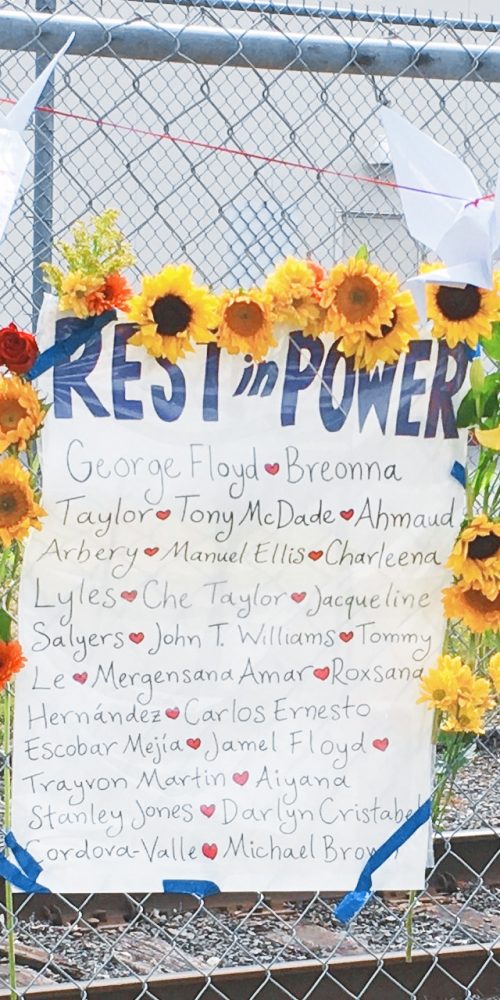 REST in POWER
George Floyd ♥ Breonna
Taylor ♥ Tony McDade ♥ Ahmaud
Arbery ♥ Manuel Ellis ♥ Charleena
Lyles ♥ Che Taylor ♥ Jacqueline
Salyers ♥ John T. Williams ♥ Tommy
Le ♥ Mergensana Amar ♥ Roxsana
Hernández ♥ Carlos Ernesto
Escobar Mejía ♥ Jamel Floyd ♥
Trayvon Martin ♥ Aiyana
Stanley Jones ♥ Darlyn Cristabel
Cordova-Valle ♥ Michael Brown